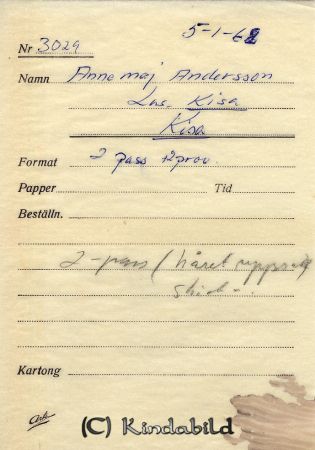 5-1-62
Nr 3029
Namn Anne maj Andersson
Las. Kisa
Kisa
Format 2 pass + 2 prov
Papper Tid
Beställn.
2-pass ( håret
Kartong
(C) Kindabild